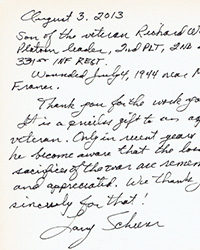 August 3. 2013
Son of the veteran Richard W
Platoon leader, 2nd PLT, 2ND
331st INF REGT.
Wounded July 4, 1944 near M
France.
Thank you for the work you
It is a priceless gift to an ag
veteran. Only in recent years
he become aware that the loss
sacrifices of the war are remem
and appreciated. We thank
sincerely for that!